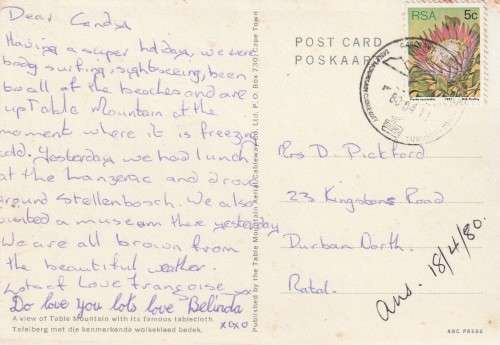 Dear
Having a super holiday, we were
body surfing, sightseeing, been
to all of the beaches and are
up Table Mountain at the
moment where it is freezing
cold. Yesterday we had lunch
at the Lanzerac and drove
around Stellenbosch. We also
visited a museum there yesterday
We are all brown from
the beautiful weather.
Lots of Love Françoise xx
Do love you lots love Belinda
xoxo
A view of Table Mountain with its famous tablecloth.
Tafelberg met die kenmerkende wolkekleed bedek.
Published by The Table Mountain Aerial Cableway Co. Ltd. P.O. Box 730, Cape Town
POST CARD
POSKAART
RSA 5c
Mrs D. Pickford
23 Kingsbons Road
Durban North.
Natal.
Ans. 18/4/80.
NBC PRESS